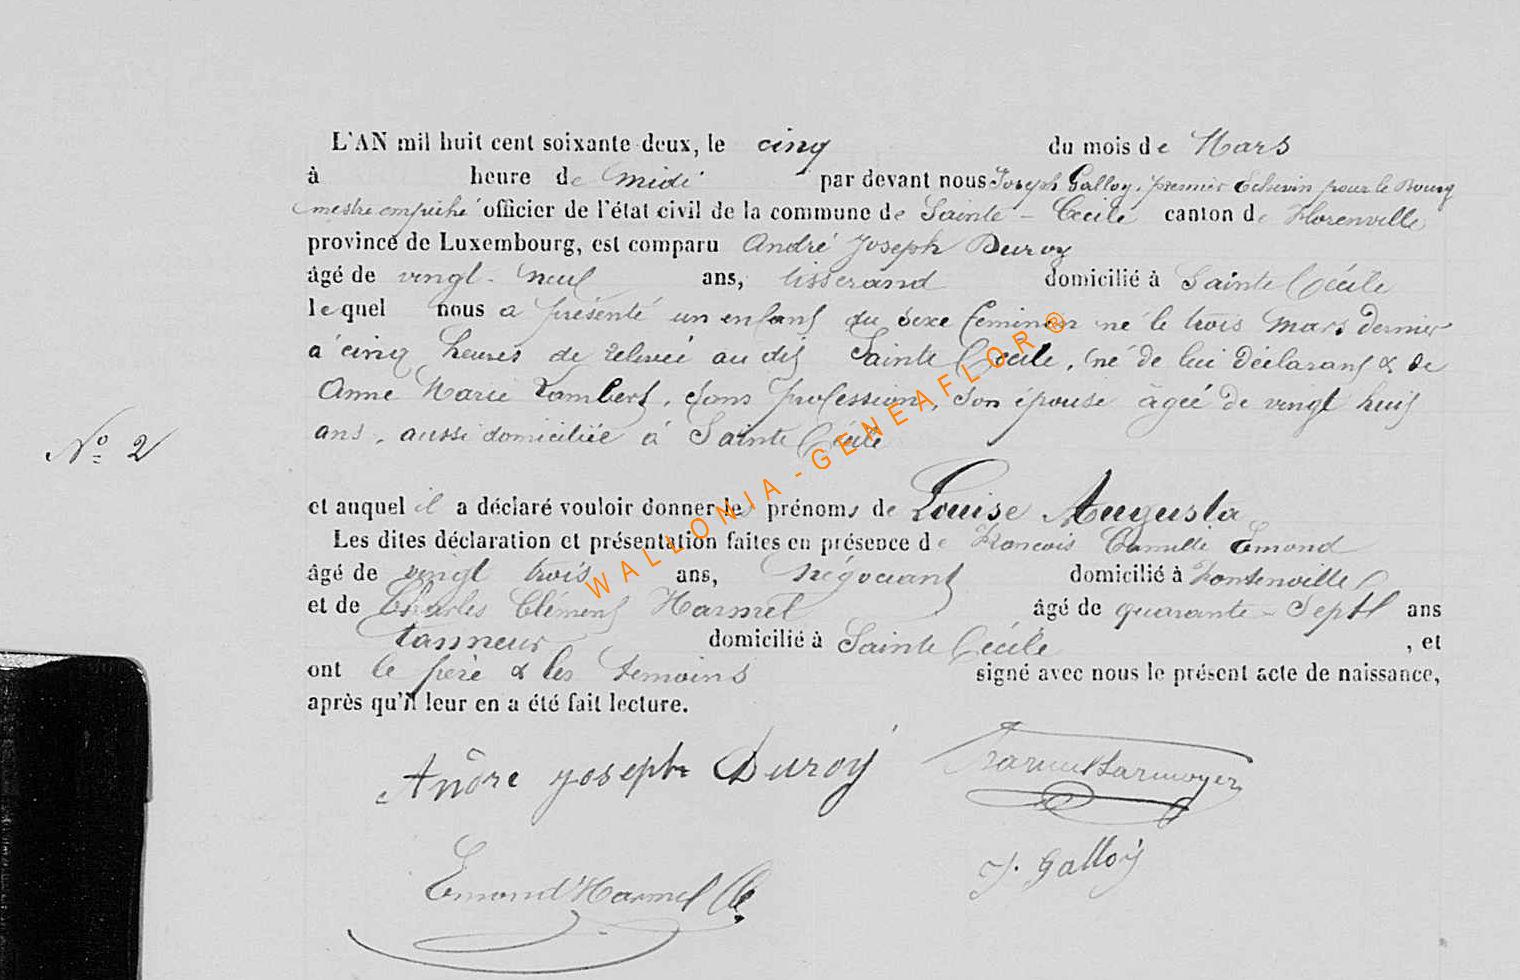 L'AN mil huit cent soixante deux, le cinq du mois de Mars
à heure de midi par devant nous Joseph Galloy, premier Echevin pour le Bourg
mestre empeché officier de l'état civil de la commune de Sainte - Cecile canton de Florenville
province de Luxembourg, est comparu André Joseph Duroy
âgé de vingt-neuf ans, tisserand domicilié à Sainte Cécile
lequel nous a présenté un enfant du sexe feminin né le trois mars dernier
à cinq heures de relevée au dit Sainte Cecile, né de lui déclarant & de
Anne Marie Lambert, sans profession, son épouse âgée de vingt huit
ans, aussi domiciliée à Sainte Cécile
N° 2
et auquel il a déclaré vouloir donner les prénoms de Louise Augusta
Les dites déclaration et présentation faites en présence de François Camille Emond
âgé de vingt trois ans, négociant domicilié à Fontenoille
et de Charles Clément Harmel âgé de quarante-sept ans
tanneur domicilié à Sainte Cécile, et
ont le père & les témoins signé avec nous le présent acte de naissance,
après qu'il leur en a été fait lecture.
André joseph Duroy
Emond Harmel
J. Galloy
WALLONIA - GENEAFLOR ®